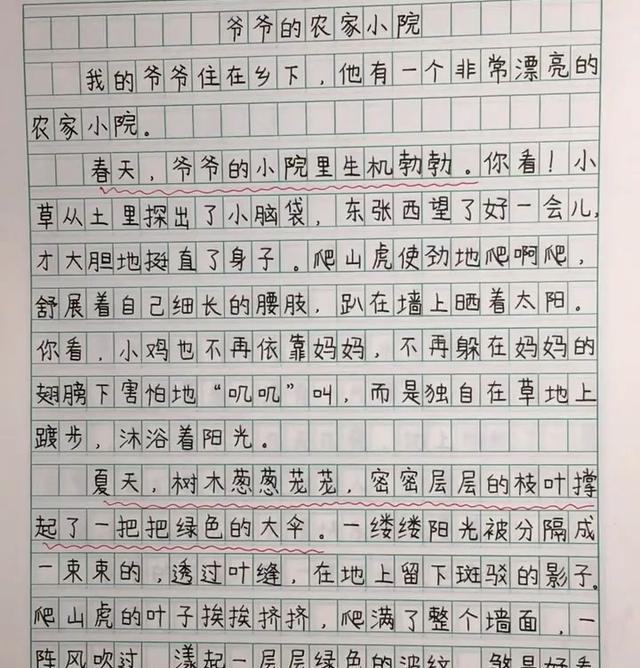 爷爷的农家小院
我的爷爷住在乡下，他有一个非常漂亮的
农家小院。
春天，爷爷的小院里生机勃勃。你看！小
草从土里探出了小脑袋，东张西望了好一会儿，
才大胆地挺直了身子。爬山虎使劲地爬啊爬，
舒展着自己细长的腰肢，趴在墙上晒着太阳。
你看，小鸡也不再依靠妈妈，不再躲在妈妈的
翅膀下害怕地“叽叽”叫，而是独自在草地上
踱步，沐浴着阳光。
夏天，树木葱葱茏茏，密密层层的枝叶撑
起了一把把绿色的大伞。一缕缕阳光被分隔成
一束束的，透过叶缝，在地上留下斑驳的影子。
爬山虎的叶子挨挨挤挤，爬满了整个墙面，一
阵风吹过，漾起一层层绿色的波纹，煞是好看